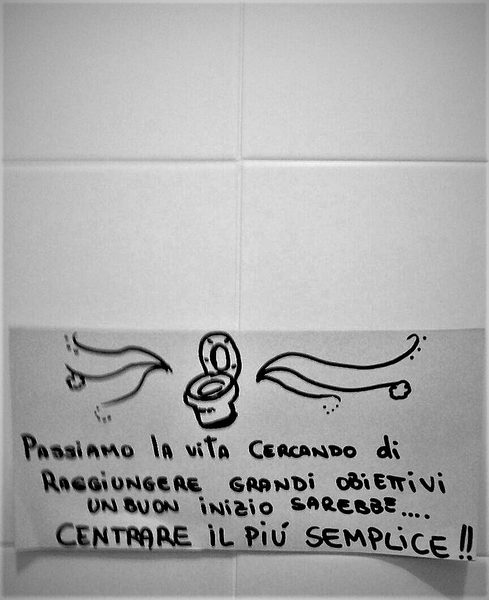 PASSIAMO lA viTA CERCANDO di
RAGGIUNGERE GRANDI OBIETTIVI
UN BUON iNiZiO SAREBBE....
CENTRARE iL PIÚ SEMPLICE!!